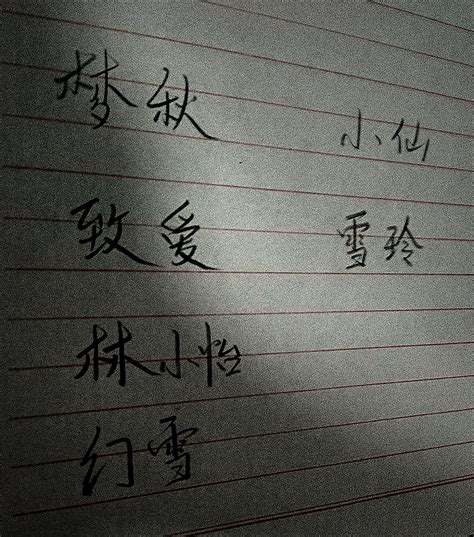 梦秋 小仙
致爱 雪玲
林小怡
幻雪